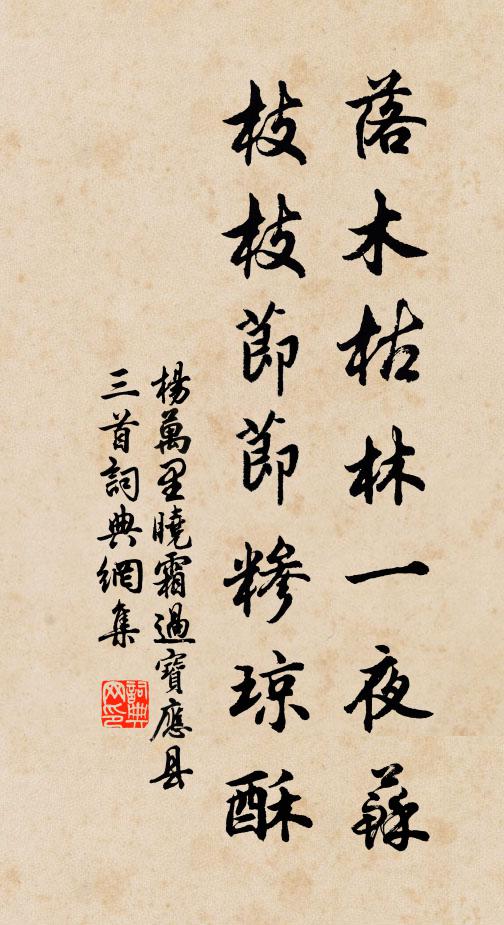 落木枯林一夜蘇
枝枝節節糝琼酥
楊萬里曉霜過寶應县
三首詞典網集
詞典网印